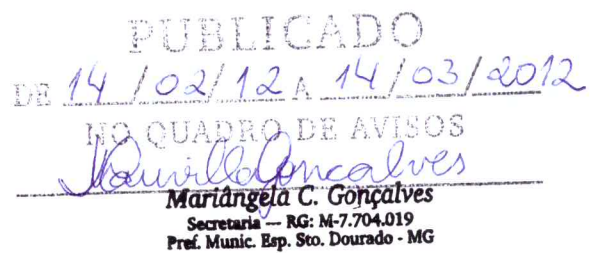 PUBLICADO
DE 14/02/12 A 14/03/2012
NO QUADRO DE AVISOS
Gonçalves
Mariângela C. Gonçalves
Secretaria — RG: M-7.704.019
Pref. Munic. Esp. Sto. Dourado - MG